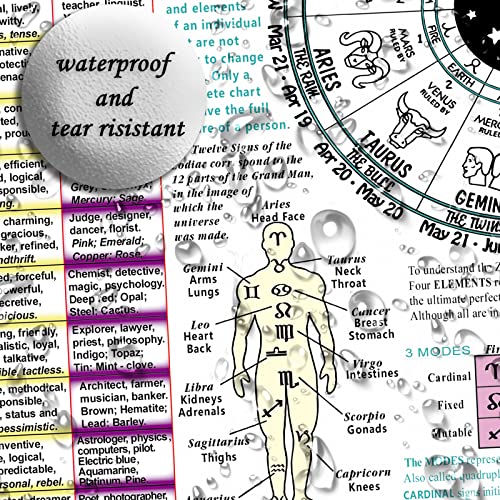 al, lively,
witty.
s, tense.
native,
otective,
enacity.
efficient,
d, logical,
sponsible,
charming,
gracious,
ker, refined,
ndthrift.
ed, forceful,
owerful,
ecretive,
picious.
ing, friendly,
alistic, loyal,
talkative,
ible; tactless.
e, methodical,
ponsible,
status and
pessimistic.
nventive,
e, logical,
predictable,
ersonal, rebel.
teacher, linguist.
waterproof
and
tear risistant
Grey;
Mercury; Sage
Judge, designer,
dancer, florist.
Pink; Emerald;
Copper; Rose.
Chemist, detective,
magic, psychology.
Deep red; Opal;
Steel; Cactus.
Explorer, lawyer,
priest, philosophy.
Indigo; Topaz;
Tin; Mint - clove.
Architect, farmer,
musician, banker.
Brown; Hematite;
Lead; Barley.
Astrologer, physics,
computers, pilot.
Electric blue,
Aquamarine,
Platinum, Pine.
Poet, photographer,
and elements
of an individual
are not
to change
Only a
ete chart
ve the full
e of a person.
Twelve Signs of the
Zodiac correspond to the
12 parts of the Grand Man,
in the image of
which the
universe
was made.
Aries
Head Face
Taurus
Neck
Throat
Gemini
Arms
Lungs
Cancer
Breast
Stomach
Leo
Heart
Back
Virgo
Intestines
Libra
Kidneys
Adrenals
Scorpio
Gonads
Sagittarius
Thighs
Capricorn
Knees
Aquarius
Mar 21 · Apr 19
ARIES
THE RAM
MARS
RULED BY
1
FIRE
EARTH
Apr 20 · May 20
TAURUS
THE BULL
VENUS
RULED BY
2
MERC
RULED
GEMINI
THE TWINS
May 21 · Ju
To understand the
Four ELEMENTS r
the ultimate perfec
Although all are in
3 MODES
Fir
Cardinal
Fixed
Mutable
The MODES represe
Also called quadrupl
CARDINAL signs init